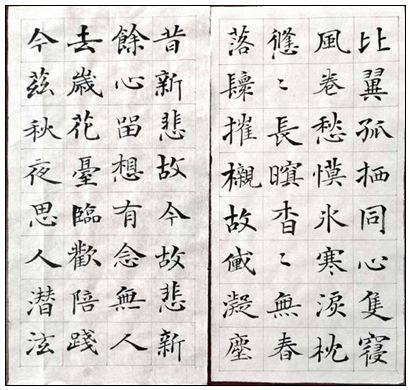 比翼孤栖同心隻寢
風卷愁慔氷寒淚枕
悠〻長暝杳〻無春
落摧櫬故凝塵
昔新悲故今故悲新
餘心留想有念無人
去歲花臺臨歡陪踐
今茲秋夜思人潜泫